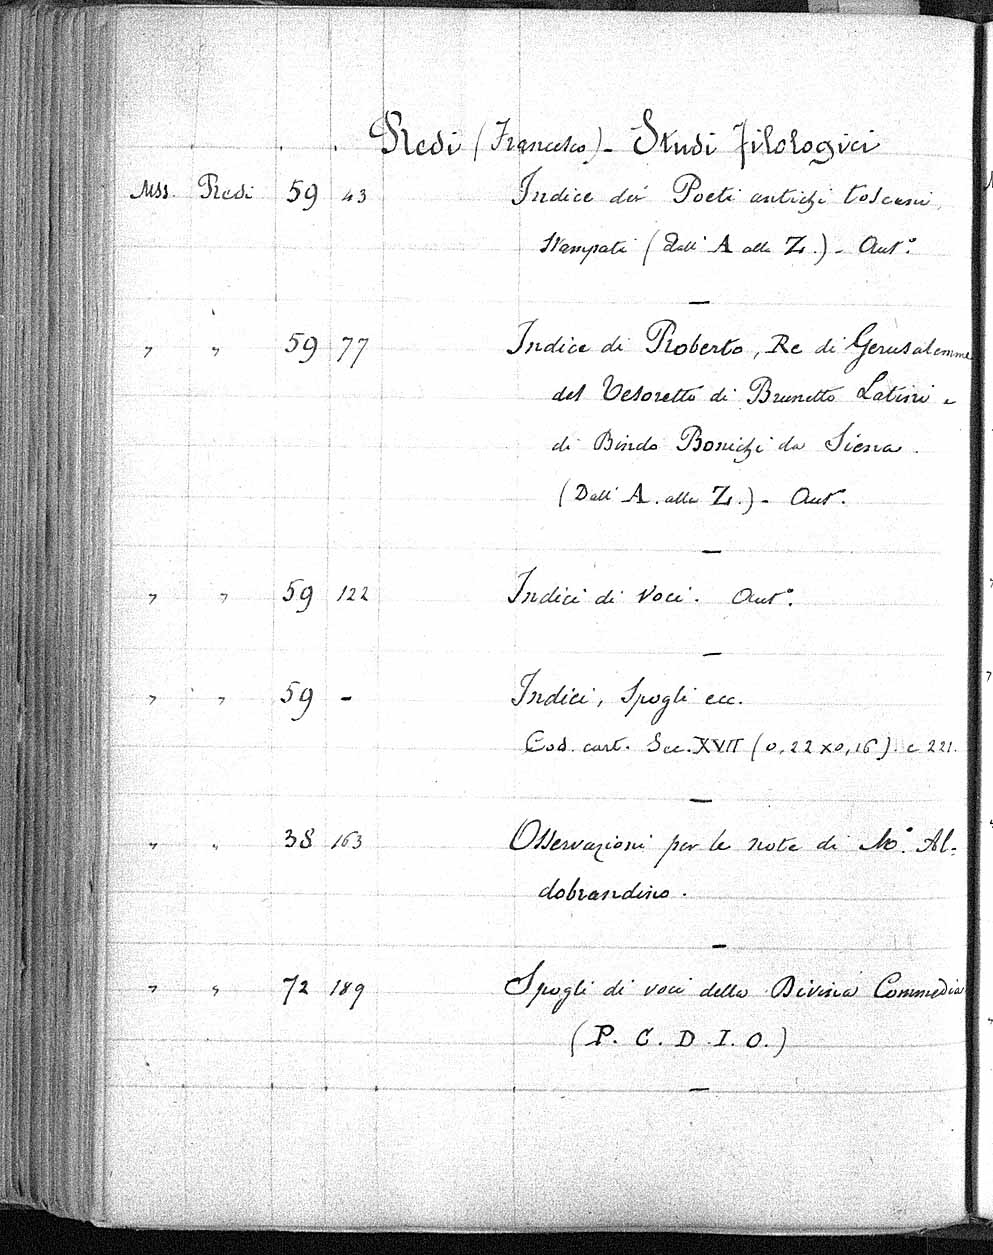 Redi (Francesco) - Studi filologici
Mss. Redi 59 43 Indice dei Poeti antichi toscani,
stampati (Dall' A alla Z.) - Aut°.
" " 59 77 Indice di Roberto, Re di Gerusalemme
del Tesoretto di Brunetto Latini e
di Bindo Bonichi da Siena.
(Dall' A. alla Z.) - Aut°.
" " 59 122 Indici di Voci. Aut°.
" " 59 - Indici, Spogli ecc.
Cod. cart. Sec. XVII (0,22 x 0,16) c 221.
" " 38 163 Osservazioni per le note di Mo. Al-
dobrandino.
" " 72 189 Spogli di voci della Divina Commedia
(P. C. D. I. O.)